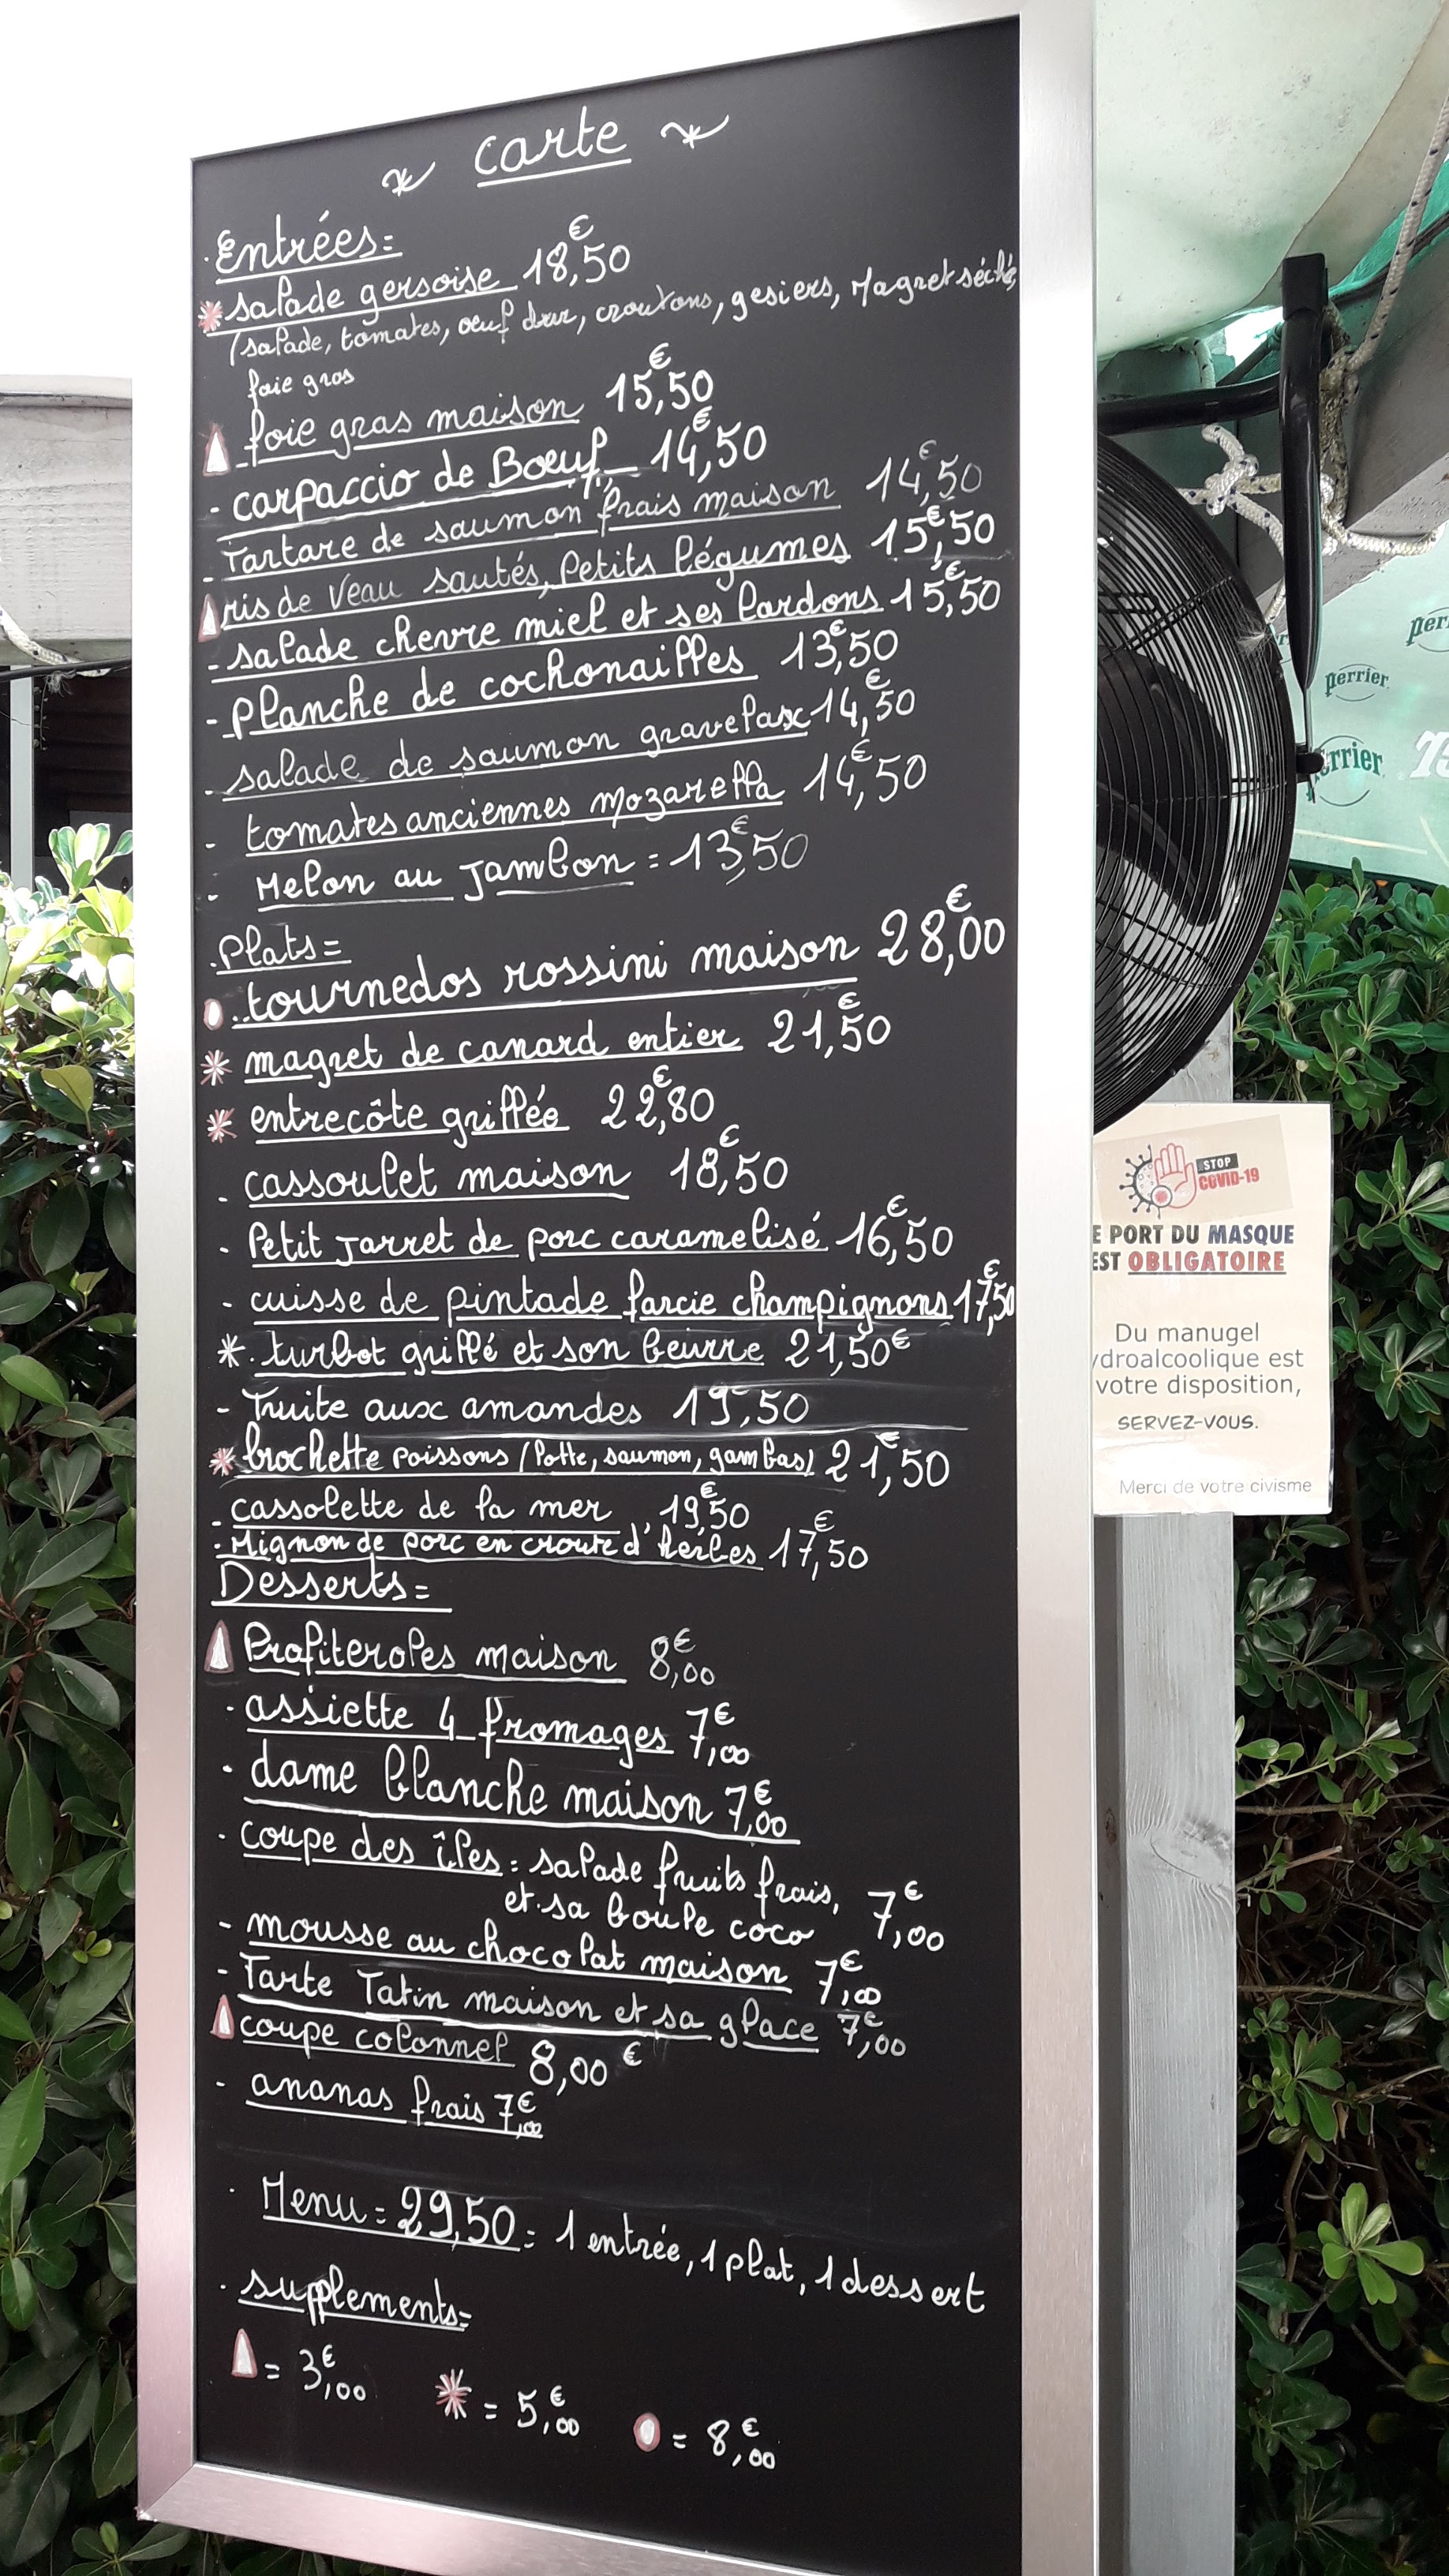 carte
Entrées=
salade gersoise 18,50€
(salade, tomates, oeuf dur, croutons, gesiers, Magret séché,
foie gras
foie gras maison 15,50€
- carpaccio de Bœuf 14,50€
- Tartare de saumon frais maison 14,50€
ris de Veau sautés, Petits légumes 15,50€
- salade chevre miel et ses lardons 15,50€
- Planche de cochonailles 13,50€
- salade de saumon gravelax 14,50€
- tomates anciennes mozarella 14,50€
- Melon au Jambon = 13,50€
Plats=
tournedos rossini maison 28,00€
* magret de canard entier 21,50€
* entrecôte grillée 22,80€
- cassoulet maison 18,50€
- Petit Jarret de porc caramelisé 16,50€
- cuisse de pintade farcie champignons 17,50€
* turbot grillé et son beurre 21,50€
- Truite aux amandes 19,50
* brochette poissons (lotte, saumon, gambas) 21,50€
- cassolette de la mer 19,50€
- Mignon de porc en croute d'herbes 17,50€
Desserts=
Profiteroles maison 8,00€
- assiette 4 fromages 7,00€
- dame blanche maison 7,00€
- coupe des îles = salade fruits frais,
et sa boule coco 7,00€
- mousse au chocolat maison 7,00€
- Tarte Tatin maison et sa glace 7,00€
coupe colonnel 8,00€
- ananas frais 7,00€
Menu = 29,50 = 1 entrée, 1 plat, 1 dessert
supplements=
= 3,00€ * = 5,00€ = 8,00€
STOP
COVID-19
E PORT DU MASQUE
EST OBLIGATOIRE
Du manugel
ydroalcoolique est
votre disposition,
SERVEZ-VOUS.
Merci de votre civisme
perrier
perrier